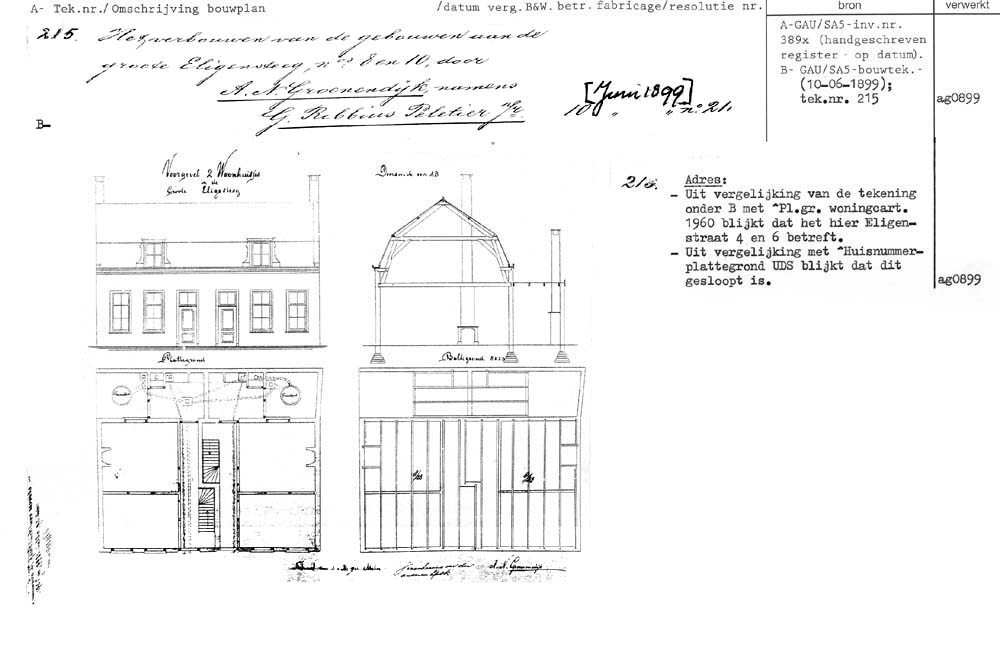 A- Tek.nr./Omschrijving bouwplan /datum verg.B&W.betr.fabricage/resolutie nr. bron verwerkt
215. Het verbouwen van de gebouwen aan de
groote Eligensteeg, nos 8 en 10, door
A. N. Groenendijk, namens
G. Ribbius Peletier Jr.
[Juni 1899]
10 " " no. 21
B-
A-GAU/SA5-inv.nr.
389x (handgeschreven
register - op datum).
B- GAU/SA5-bouwtek.-
(10-06-1899);
tek.nr. 215
ag0899
Voorgevel 2 Woonhuisjes
in de
Groote Eligesteeg
Doorsnede over AB
Plattegrond
Balklaag
215. Adres:
- Uit vergelijking van de tekening
onder B met ^Pl.gr. woningcart.
1960 blijkt dat het hier Eligen-
straat 4 en 6 betreft.
- Uit vergelijking met ^Huisnummer-
plattegrond UDS blijkt dat dit
gesloopt is.
ag0899